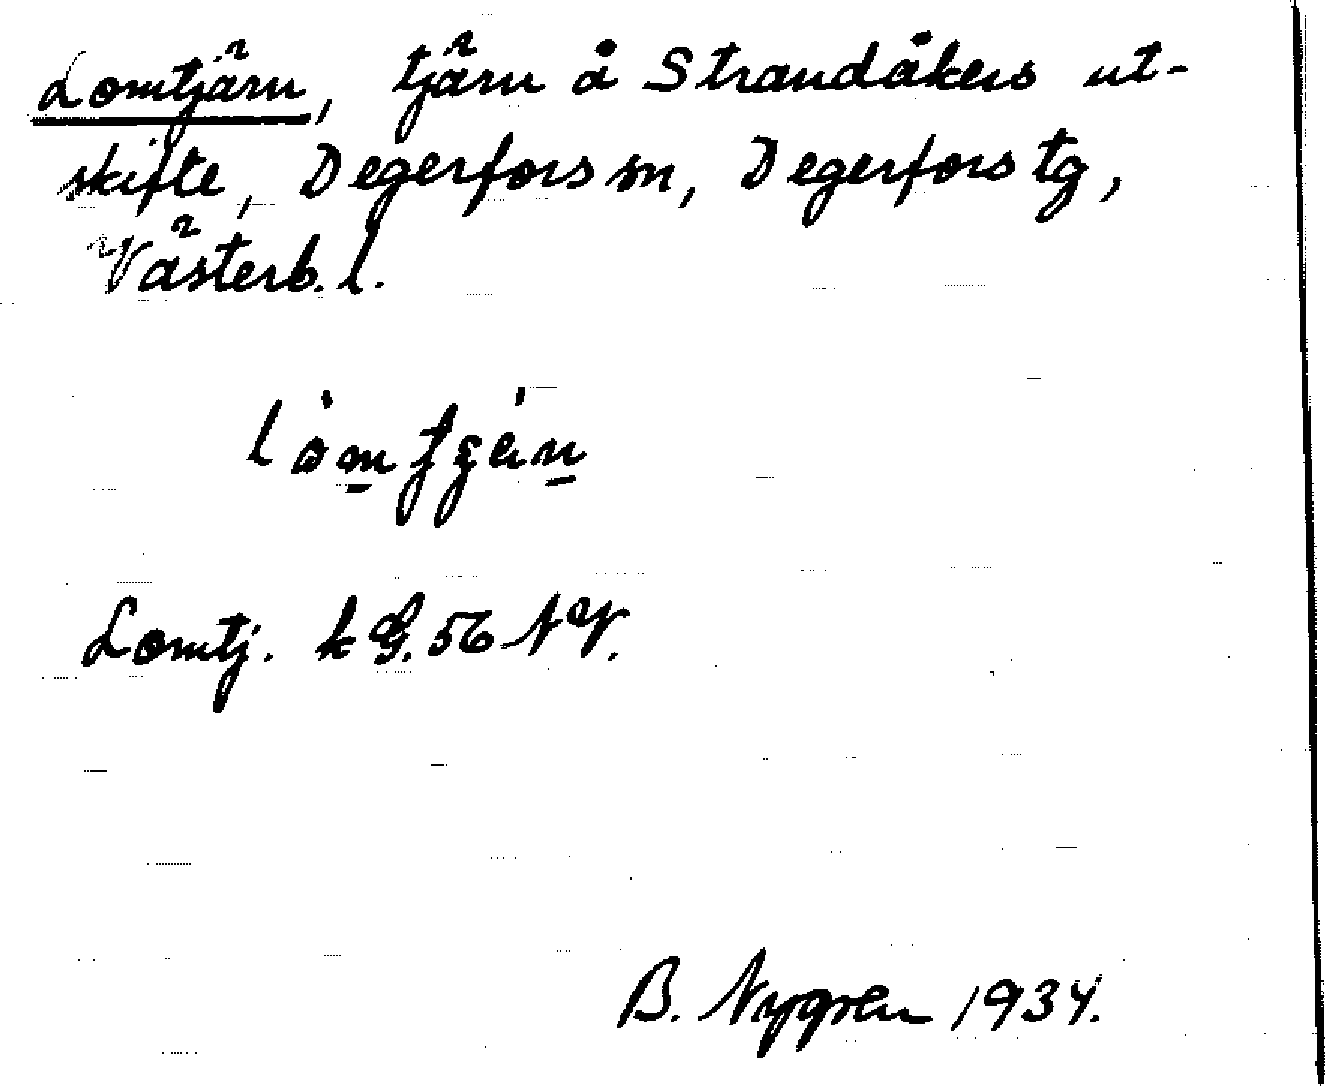 Lomtjärn, tjärn å Strandåkers ut-
skifte, Degerfors sn, Degerfors tg,
Västerb. l.
Lomtj. k G. 56 NV.
B. Nygren 1934.